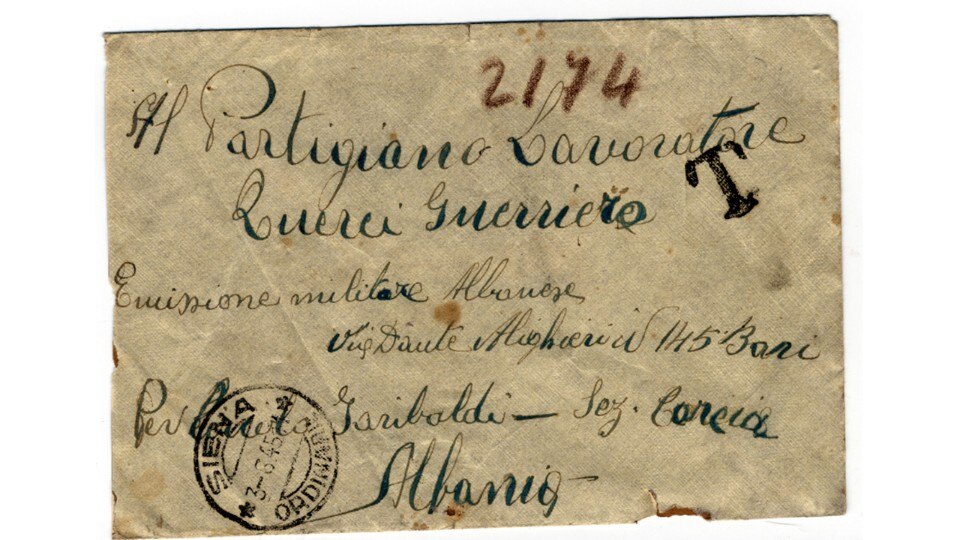 2174
Al Partigiano Lavoratore
T
Querci Guerriero
Emissione militare Albanese
via Dante Alighieri n 145 Bari
Per Garibaldi - Sez. Corcia
Albania
SIENA
3-8.45
ORDINARIE